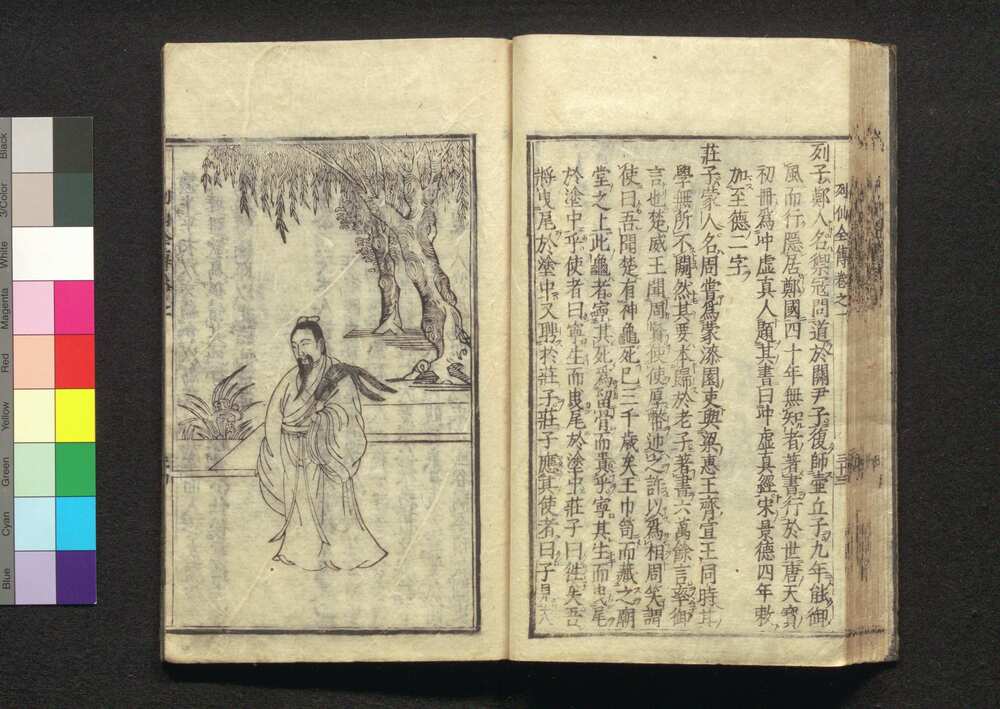 列仙全傳卷之一
三十三
列子鄭人名禦冠問道於關尹子復師壷丘子九年能御
風而行隱居鄭國四十年無知者著書行於世唐天寳
初冊爲冲虚真人題其書曰冲虚真經宋景德四年敕
加至德二字
莊子蒙人名周嘗爲蒙漆園吏與梁惠王齊宣王同時其
學無所不闚然其要本歸於老子著書六萬餘言率御
言也楚威王聞周賢使使厚幣迎之許以爲相周笑謂
使曰吾聞楚有神龜死已三千歳矣王巾笥而藏之廟
堂之上此龜者寧其死爲留骨而貴乎寧其生而曳尾
於塗中乎使者曰寧生而曳尾於塗中莊子曰徃矣吾
將曳尾於塗中又聘於莊子莊子應其使者曰子見夫
Black
3/Color
White
Magenta
Red
Yellow
Green
Cyan
Blue